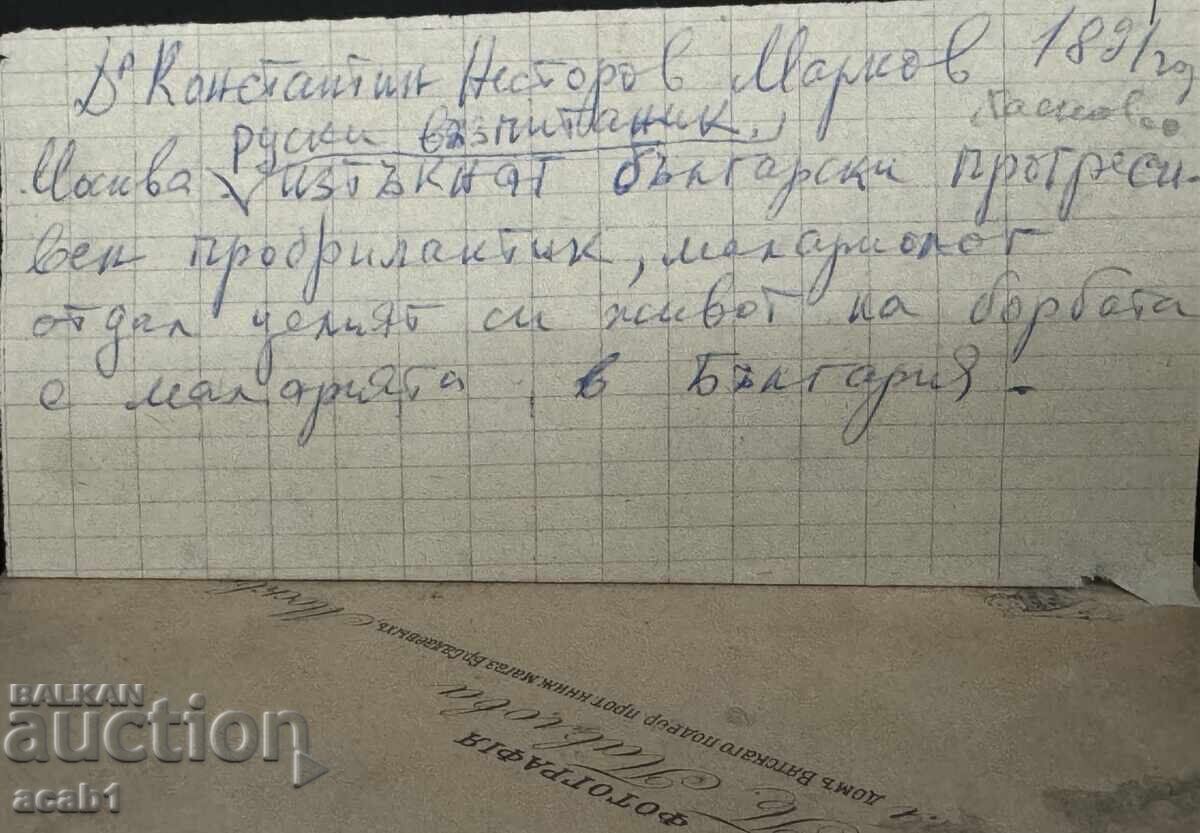 Dр Константин Несторов Марков 1891 год
руски възпитаник,
Москва √ изтъкнат български прогреси-
вен профилактик, маларполог
отдал целият си живот на борбата
с маларията в България.
ФОТОГРАФІЯ
Павлова
д. домъ Вятскаго подвор прот книж магаз Бр Башмаковыхъ.
BALKAN
auction
acab1